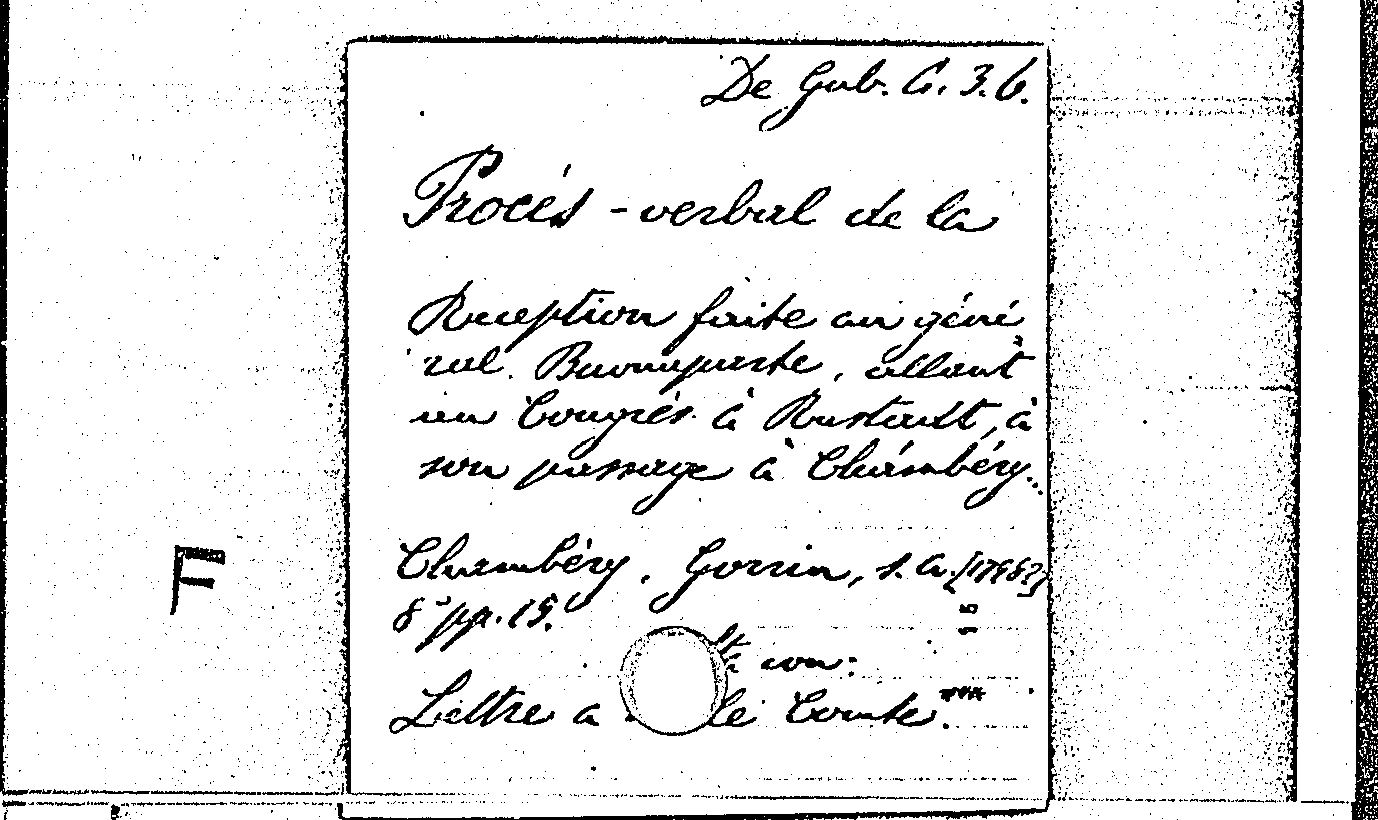 De Gub. G. 3. 6.
Procés-verbal de la
Reception faite au géné
ral Buonaparte, allant
au Congrès à Rastadt, à
son passage à Chámbéry...
Chambéry, Gorrin, s. a. [1798?]
8° pp. 15.
con:
Lettre a le Comte.***
F